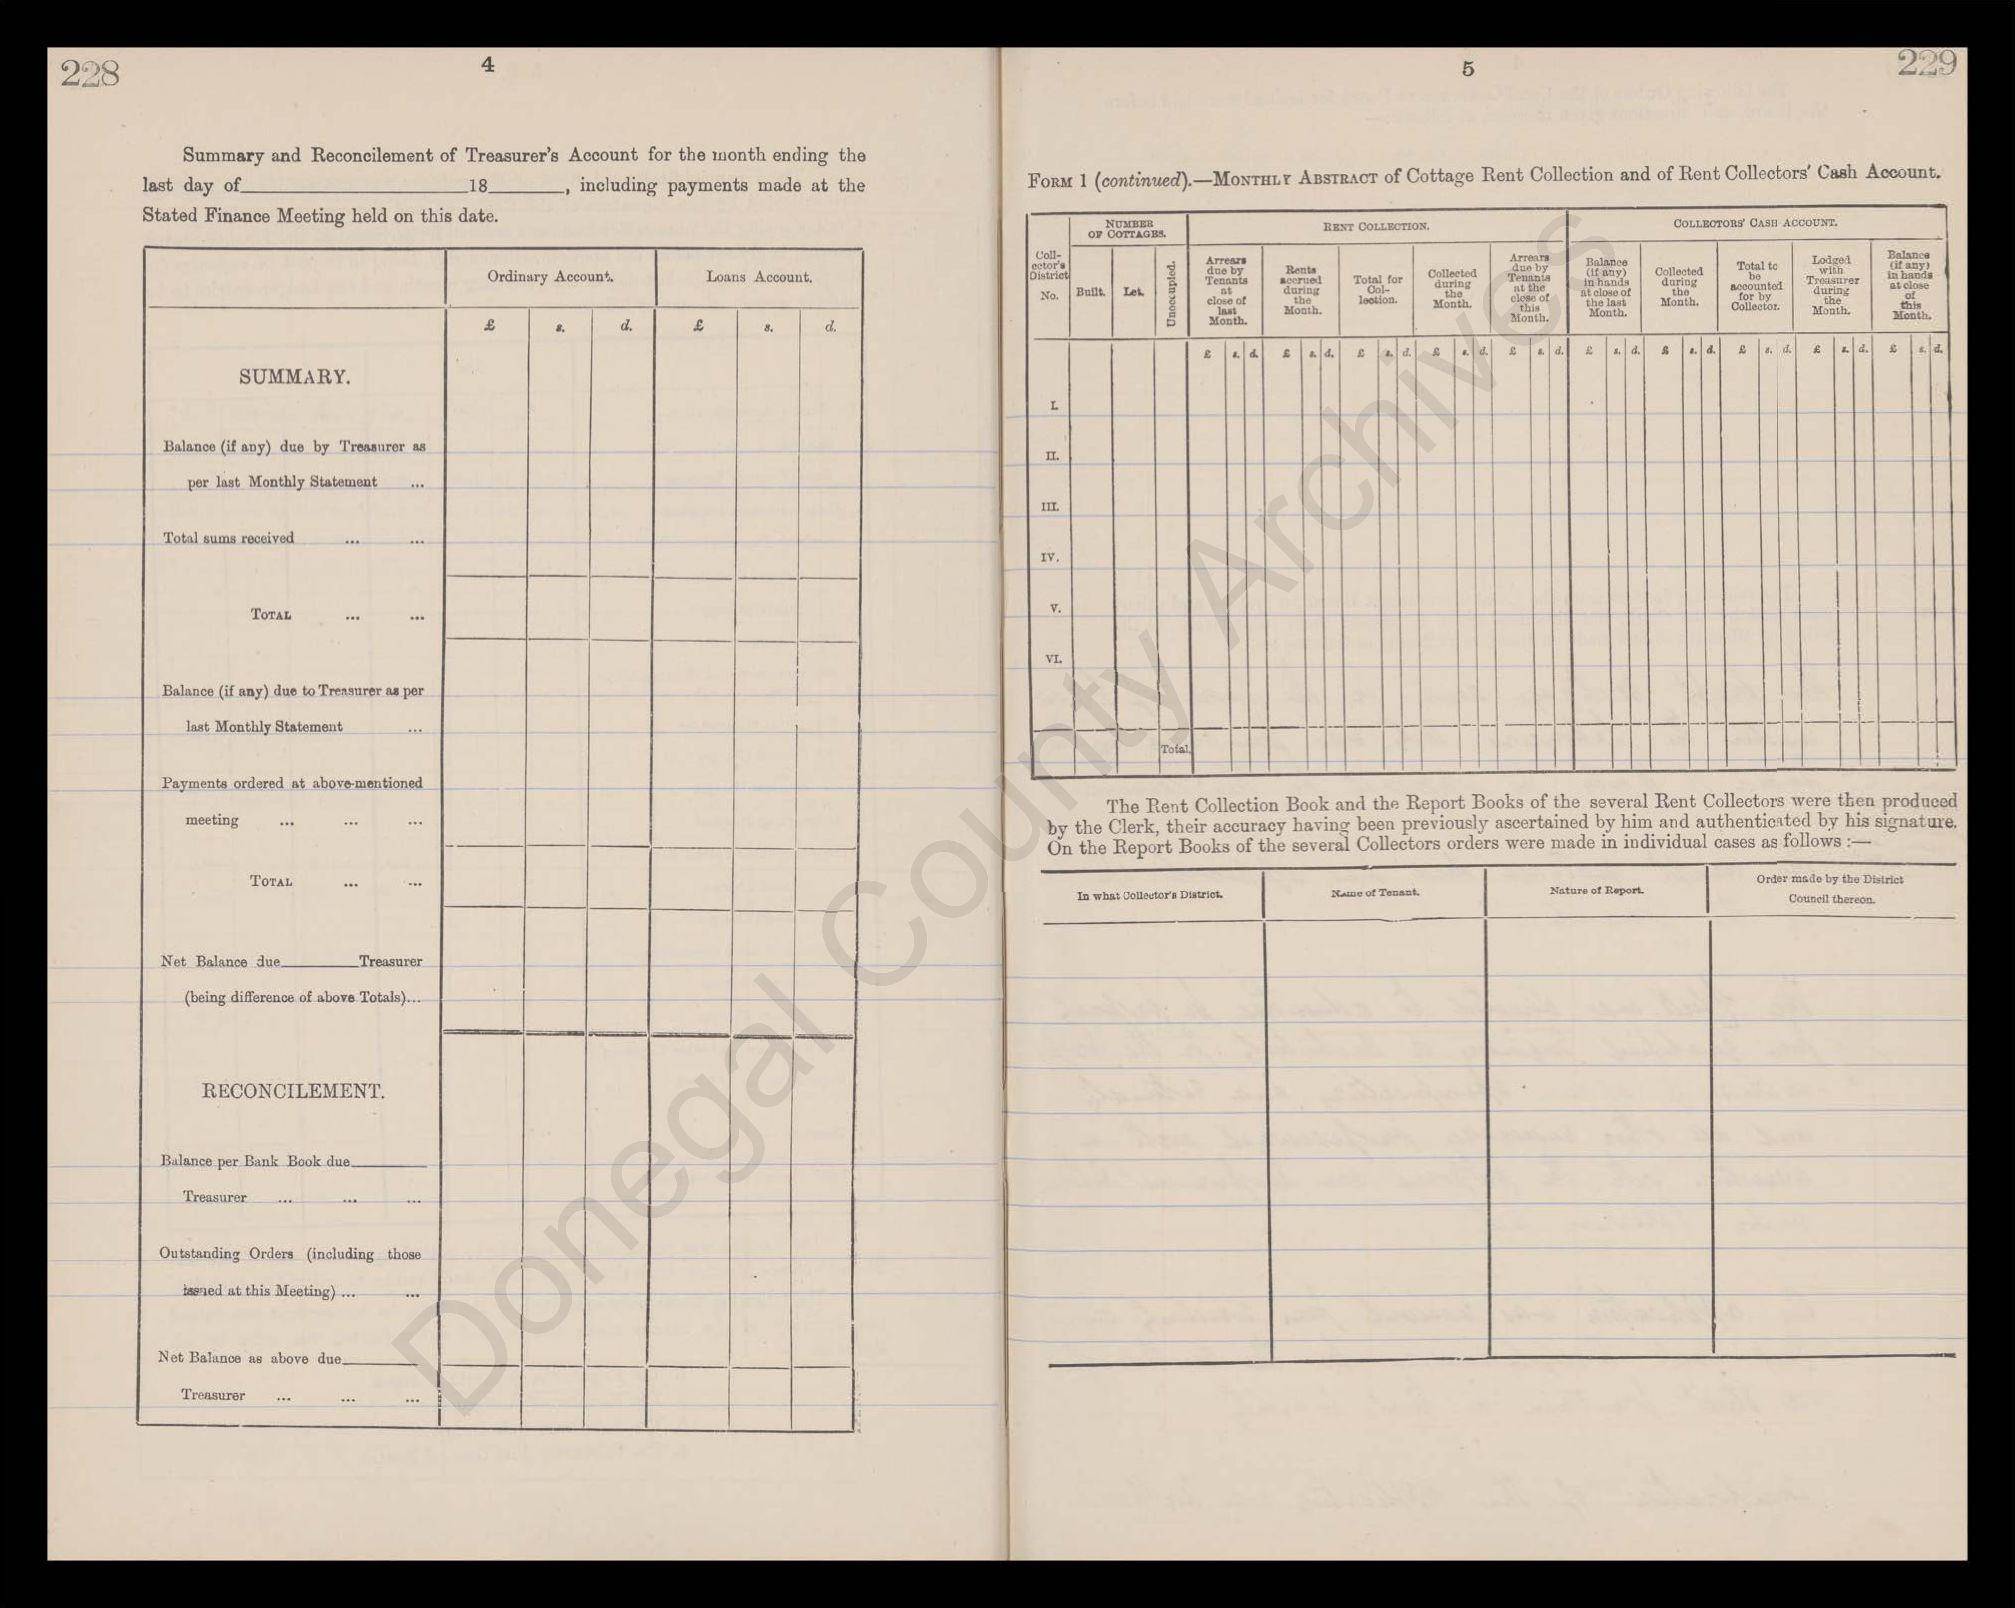 228
4
Summary and Reconcilement of Treasurer's Account for the month ending the
last day of 18 , including payments made at the
Stated Finance Meeting held on this date.
Ordinary Account. Loans Account.
£ s. d. £ s. d.
SUMMARY.
Balance (if any) due by Treasurer as
per last Monthly Statement ...
Total sums received ... ...
TOTAL ... ...
Balance (if any) due to Treasurer as per
last Monthly Statement ...
Payments ordered at above-mentioned
meeting ... ... ...
TOTAL ... ...
Net Balance due Treasurer
(being difference of above Totals)...
RECONCILEMENT.
Balance per Bank Book due
Treasurer ... ... ...
Outstanding Orders (including those
issued at this Meeting) ... ...
Net Balance as above due
Treasurer ... ... ...
5
229
FORM 1 (continued).—MONTHLY ABSTRACT of Cottage Rent Collection and of Rent Collectors' Cash Account.
Coll-
ector's
District
No.
NUMBER
OF COTTAGES.
Built.
Let.
Unoccupied.
RENT COLLECTION.
Arrears
due by
Tenants
at
close of
last
Month.
Rents
accrued
during
the
Month.
Total for
Col-
lection.
Collected
during
the
Month.
Arrears
due by
Tenants
at the
close of
this
Month.
COLLECTORS' CASH ACCOUNT.
Balance
(if any)
in hands
at close of
the last
Month.
Collected
during
the
Month.
Total to
be
accounted
for by
Collector.
Lodged
with
Treasurer
during
the
Month.
Balance
(if any)
in hands
at close
of
this
Month.
£ s. d. £ s. d. £ s. d. £ s. d. £ s. d. £ s. d. £ s. d. £ s. d. £ s. d. £ s. d.
I.
II.
III.
IV.
V.
VI.
Total.
The Rent Collection Book and the Report Books of the several Rent Collectors were then produced
by the Clerk, their accuracy having been previously ascertained by him and authenticated by his signature.
On the Report Books of the several Collectors orders were made in individual cases as follows :—
In what Collector's District. Name of Tenant. Nature of Report. Order made by the District
Council thereon.
Donegal County Archives